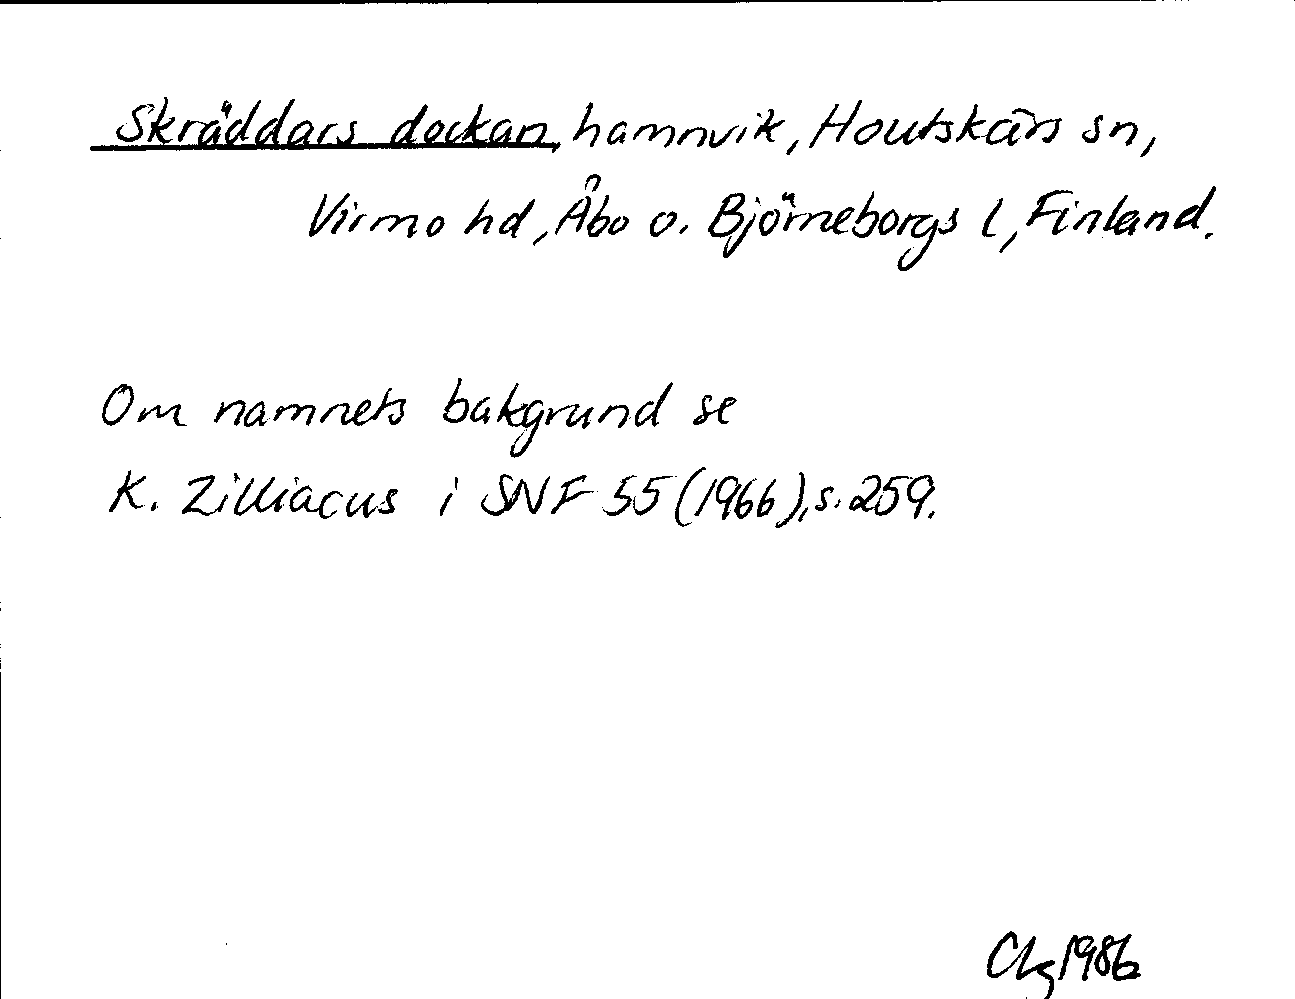 Skräddars dockan, hamnvik, Houtskärs sn,
Virmo hd, Åbo o. Björneborgs l, Finland.
Om namnets bakgrund se
K. Zilliacus i SNF 55 (1966), s. 259.
1986